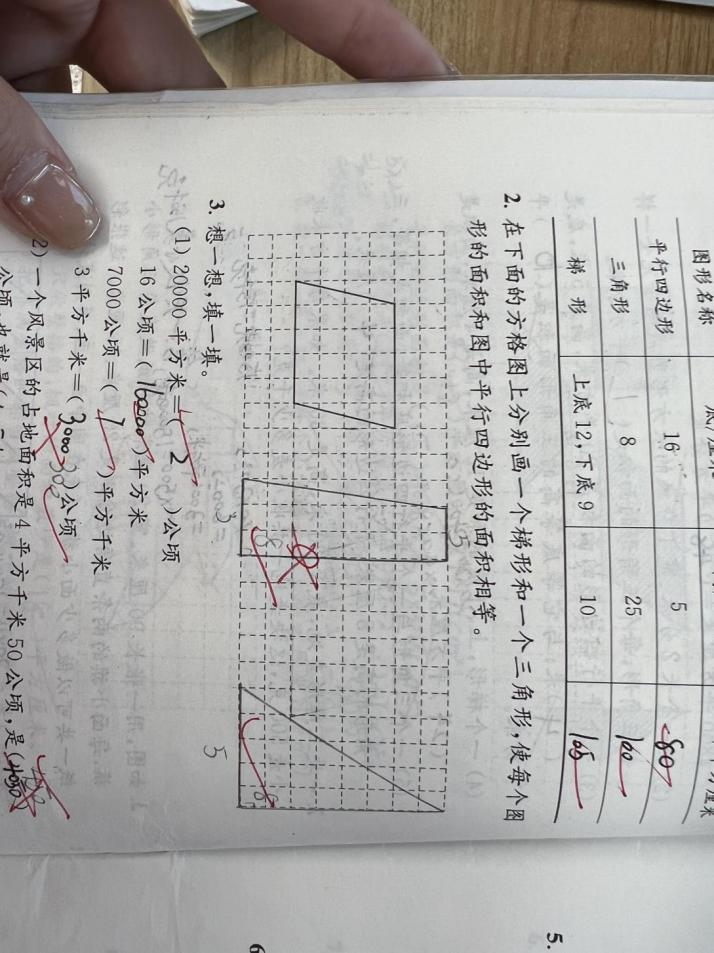 图形名称
平行四边形 16 5 80
三角形 8 25 100
梯形 上底12,下底9 10 105
2. 在下面的方格图上分别画一个梯形和一个三角形,使每个图
形的面积和图中平行四边形的面积相等。
3 8 5
5 8
3. 想一想,填一填。
(1) 20000平方米=( 2 )公顷
16公顷=( 160000 )平方米
7000公顷=( 7 )平方千米
3平方千米=( 300 )公顷
2) 一个风景区的占地面积是4平方千米50公顷,是(
5.
6